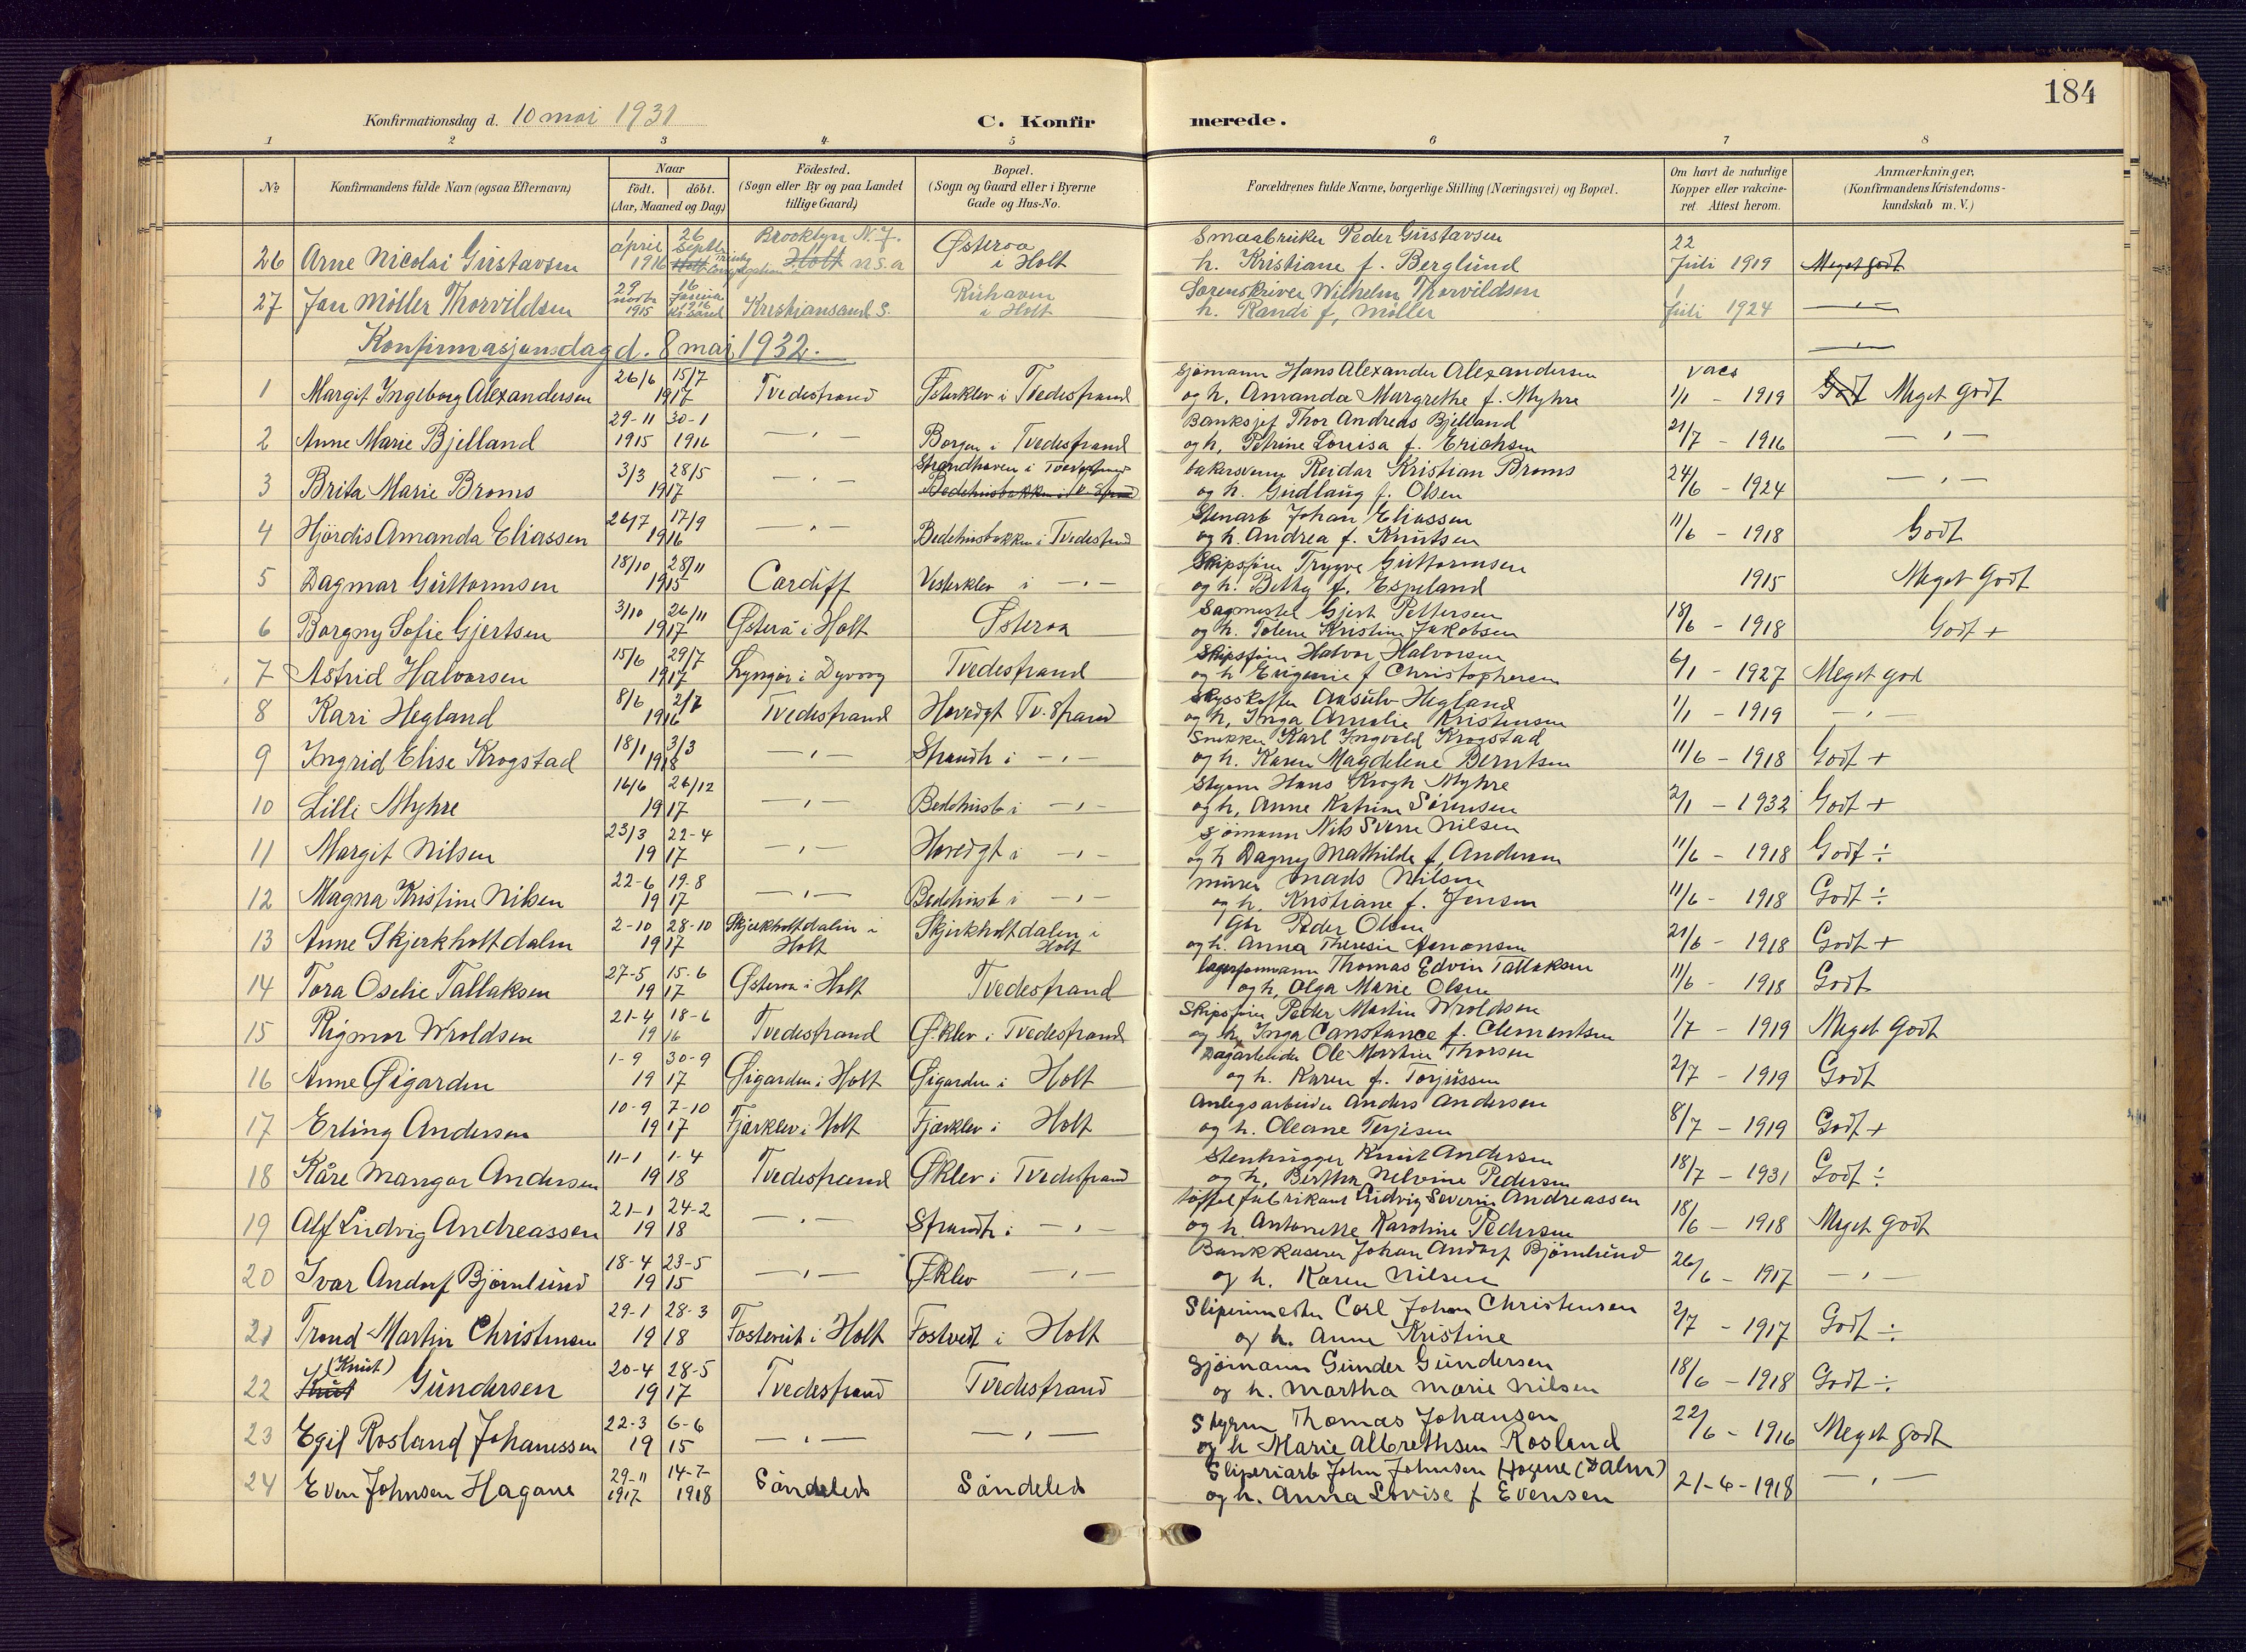 184
Konfirmationsdag d. 10 mai 1931
C. Konfir merede.
1 2 3 4 5 6 7 8
№
Konfirmandens fulde Navn (ogsaa Efternavn)
Naar
födt. döbt.
(Aar, Maaned og Dag)
Födested.
(Sogn eller By og paa Landet
tillige Gaard)
Bopæl.
(Sogn og Gaard eller i Byerne
Gade og Hus-No.
Forældrenes fulde Navne, borgerlige Stilling (Næringsvei) og Bopæl.
Om havt de naturlige
Kopper eller vakcine-
ret Attest herom.
Anmærkninger.
(Konfirmandens Kristendoms-
kundskab m. V.)
1 26 Brooklyn N. J. Smaabruker Peder Gustavsen 22
26 Arne Nicolai Gustavsen april 1916 septbr Holt Trinity Congregation Holt U.S.A Østeraa i Holt h. Kristiane f. Berglund Juli 1919 Meget godt
29 16 Sorenskriver Wilhelm Thorvildsen 1
27 Jan Möller Thorvildsen novbr 1915 Januar 1916 Kr.sand Kristiansand S. i Holt h. Randi f. Møller Juli 1924 — " —
Konfirmasjonsdag d. 8 mai 1932. — " —
26/6 15/7 Sjømann Hans Alexander Alexandersen vacs
1 Margit Ingeborg Alexandersen 1917 Tvedestrand Østerklev i Tvedestrand og h. Amanda Margrethe f. Myhre 1/1 - 1919 Godt Meget Godt
29-11 30-1 Banksjef Thor Andreas Bjelland
2 Anne Marie Bjelland 1915 1916 — " — Borgen i Tvedestrand og h. Petrine Louisa f. Erichsen 21/7 - 1916 — " —
3/3 28/5 Strandhaven i Tvedestrand bakersvenn Reidar Kristian Broms
3 Brita Marie Broms 1917 — " — Bedehusbakken i Tv. Strand og h. Gudlaug f. Olsen 24/6 - 1924 — " —
26/7 17/9 Stenarb Johan Eliassen
4 Hjördis Amanda Eliassen 1916 — " — Bedehusbakken i Tvedestrand og h. Andrea f. Knutsen 11/6 - 1918 Godt
18/10 28/11 Skipsfører Trygve Guttormsen
5 Dagmar Guttormsen 1915 Cardiff Vesterklev i — " — og h. Betty f. Espeland 1915 Meget Godt
3/10 26/11 Sagmester Gjert Pettersen
6 Borgny Sofie Gjertsen 1917 Østerå i Holt Østeraa og h. Tolene Kristine Jakobsen 18/6 - 1918 Godt +
15/6 29/7 Skipsfører Halvor Halvorsen
7 Astrid Halvorsen 1917 Lyngør i Dypvåg Tvedestrand og h Eugenie f Christophersen 6/1 - 1927 Meget god
8/6 2/7 Skysskaffer Aasulv Hegland
8 Kari Hegland 1916 Tvedestrand Hovedgt Tv. Strand og h. Inga Amalie Kristensen 1/1 - 1919 — " —
18/1 3/3 Snekker Karl Ingvald Krogstad
9 Ingrid Elise Krogstad 1918 — " — Strandh i — " — og h. Karen Magdelene Berntsen 11/6 - 1918 Godt +
16/6 26/12 Styrm Hans Krogh Myhre
10 Lilli Myhre 1917 — " — Bedehusb i — " — og h. Anne Katrine Sørensen 2/1 - 1932 Godt +
23/3 22-4 Sjømann Nils Sverre Nilsen
11 Margit Nilsen 1917 — " — Hovedgt i — " — og h Dagny Mathilde f. Andersen 11/6 - 1918 Godt ÷
22-6 19-8 murer Mads Nilsen
12 Magna Kristine Nilsen 1917 — " — Bedehusb i — " — og h. Kristiane f. Jensen 11/6 - 1918 Godt ÷
2-10 28-10 Skjerkholtdalen i Skjerkholtdalen i Gbr Peder Olsen
13 Anne Skjerkholtdalen 1917 Holt Holt og h. Anna Theresie Aanonsen 21/6 - 1918 Godt +
27-5 15-6 lagerformann Thomas Edvin Tallaksen
14 Tora Oselie Tallaksen 1917 Østeraa i Holt Tvedestrand og h. Olga Marie Olsen 11/6 - 1918 Godt
21-4 18-6 Skipsfører Peder Martin Wroldsen
15 Rigmor Wroldsen 1916 Tvedestrand Ø.klev i Tvedestrand og h. Inga Constance f. Clementsen 1/7 - 1919 Meget Godt
1-9 30-9 Dagarbeider Ole Martin Thorsen
16 Anne Øigarden 1917 Øigarden i Holt Øigarden i Holt og h. Karen f. Torjussen 2/7 - 1919 Godt
10-9 7-10 Anlegsarbeider Anders Andersen
17 Erling Andersen 1917 Fjærklev i Holt Fjærklev i Holt og h. Oleane Terjesen 8/7 - 1919 Godt +
11-1 1-4 Stenhugger Knut Andersen
18 Kåre Mangor Andersen 1918 Tvedestrand Ø.klev i Tvedestrand og h. Bertha Nelvine Pedersen 18/7 - 1931 Godt ÷
21-1 24-2 tøffelfabrikant Ludvig Severin Andreassen
19 Alf Ludvig Andreassen 1918 — " — Strandh i — " — og h. Antonette Karoline Pedersen 18/6 - 1918 Meget godt
18-4 23-5 Bankkaserer Johan Andorf Bjørnlund
20 Ivar Andorf Bjørnlund 1915 — " — Ø.klev — " — og h. Karen Nilsen 26/6 - 1917 — " —
29-1 28-3 Sliperimester Carl Johan Christensen
21 Trond Martin Christensen 1918 Fosterveit i Holt Fostvedt i Holt og h. Anne Kristine 2/7 - 1917 Godt ÷
(Knut) 20-4 28-5 Sjømann Gunder Gundersen
22 Knut Gundersen 1917 Tvedestrand Tvedestrand og h. Martha Marie Nilsen 18/6 - 1918 Godt ÷
22-3 6-6 Styrm Thomas Johansen
23 Egil Rosland Johanessen 1915 — " — — " — og h Marie Albrethsen Rosland 22/6 - 1916 Meget godt
29-11 14-7- Sliperiarb John Johnsen Hagene (Dalen)
24 Even Johnsen Hagane 1917 1918 Söndeled Söndeled og h. Anna Lovise f Evensen 21-6-1918 — " —